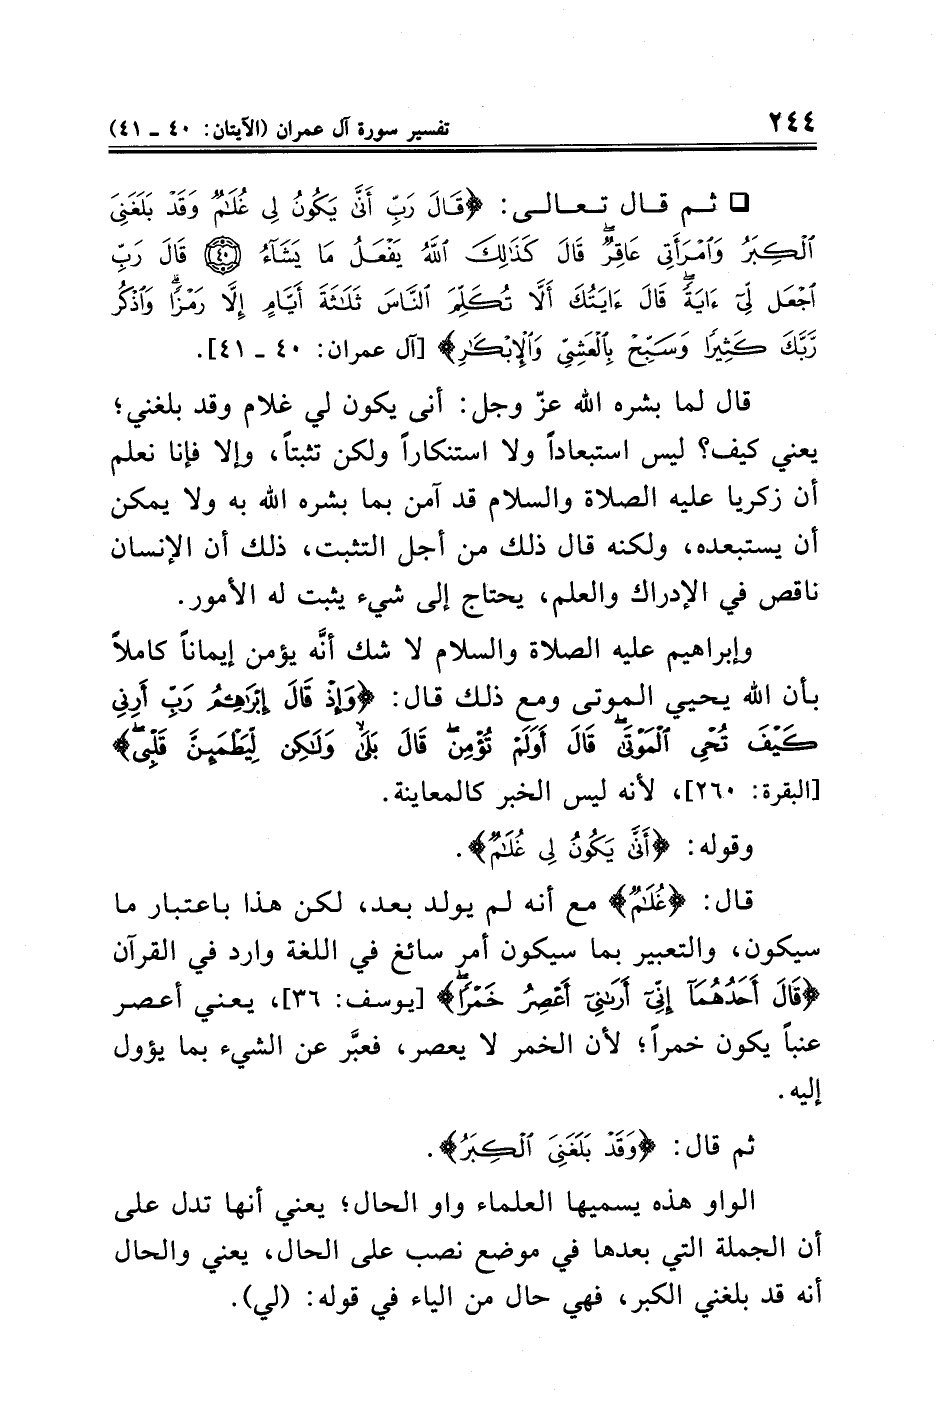 ٢٤٤ تفسير سورة آل عمران (الآيتان: ٤٠ ـ ٤١)
❑ ثـم قـال تـعـالـى: ﴿قَالَ رَبِّ أَنَّىٰ يَكُونُ لِي غُلَٰمٌ وَقَدْ بَلَغَنِيَ
ٱلْكِبَرُ وَٱمْرَأَتِي عَاقِرٌۖ قَالَ كَذَٰلِكَ ٱللَّهُ يَفْعَلُ مَا يَشَآءُ ﴿٤٠﴾ قَالَ رَبِّ
ٱجْعَل لِّيٓ ءَايَةًۖ قَالَ ءَايَتُكَ أَلَّا تُكَلِّمَ ٱلنَّاسَ ثَلَٰثَةَ أَيَّامٍ إِلَّا رَمْزًاۗ وَٱذْكُر
رَّبَّكَ كَثِيرًا وَسَبِّحْ بِٱلْعَشِيِّ وَٱلْإِبْكَٰرِ﴾ [آل عمران: ٤٠ ـ ٤١].
قال لما بشره الله عزّ وجل: أنى يكون لي غلام وقد بلغني؛
يعني كيف؟ ليس استبعاداً ولا استنكاراً ولكن تثبتاً، وإلا فإنا نعلم
أن زكريا عليه الصلاة والسلام قد آمن بما بشره الله به ولا يمكن
أن يستبعده، ولكنه قال ذلك من أجل التثبت، ذلك أن الإنسان
ناقص في الإدراك والعلم، يحتاج إلى شيء يثبت له الأمور.
وإبراهيم عليه الصلاة والسلام لا شك أنَّه يؤمن إيماناً كاملاً
بأن الله يحيي الموتى ومع ذلك قال: ﴿وَإِذْ قَالَ إِبْرَٰهِـۧمُ رَبِّ أَرِنِي
كَيْفَ تُحْيِ ٱلْمَوْتَىٰۖ قَالَ أَوَلَمْ تُؤْمِنۖ قَالَ بَلَىٰ وَلَٰكِن لِّيَطْمَئِنَّ قَلْبِيۖ﴾
[البقرة: ٢٦٠]، لأنه ليس الخبر كالمعاينة.
وقوله: ﴿أَنَّىٰ يَكُونُ لِي غُلَٰمٌ﴾.
قال: ﴿غُلَٰمٌ﴾ مع أنه لم يولد بعد، لكن هذا باعتبار ما
سيكون، والتعبير بما سيكون أمر سائغ في اللغة وارد في القرآن
﴿قَالَ أَحَدُهُمَآ إِنِّيٓ أَرَىٰنِيٓ أَعْصِرُ خَمْرًاۖ﴾ [يوسف: ٣٦]، يعني أعصر
عنباً يكون خمراً؛ لأن الخمر لا يعصر، فعبَّر عن الشيء بما يؤول
إليه.
ثم قال: ﴿وَقَدْ بَلَغَنِيَ ٱلْكِبَرُ﴾.
الواو هذه يسميها العلماء واو الحال؛ يعني أنها تدل على
أن الجملة التي بعدها في موضع نصب على الحال، يعني والحال
أنه قد بلغني الكبر، فهي حال من الياء في قوله: (لي).